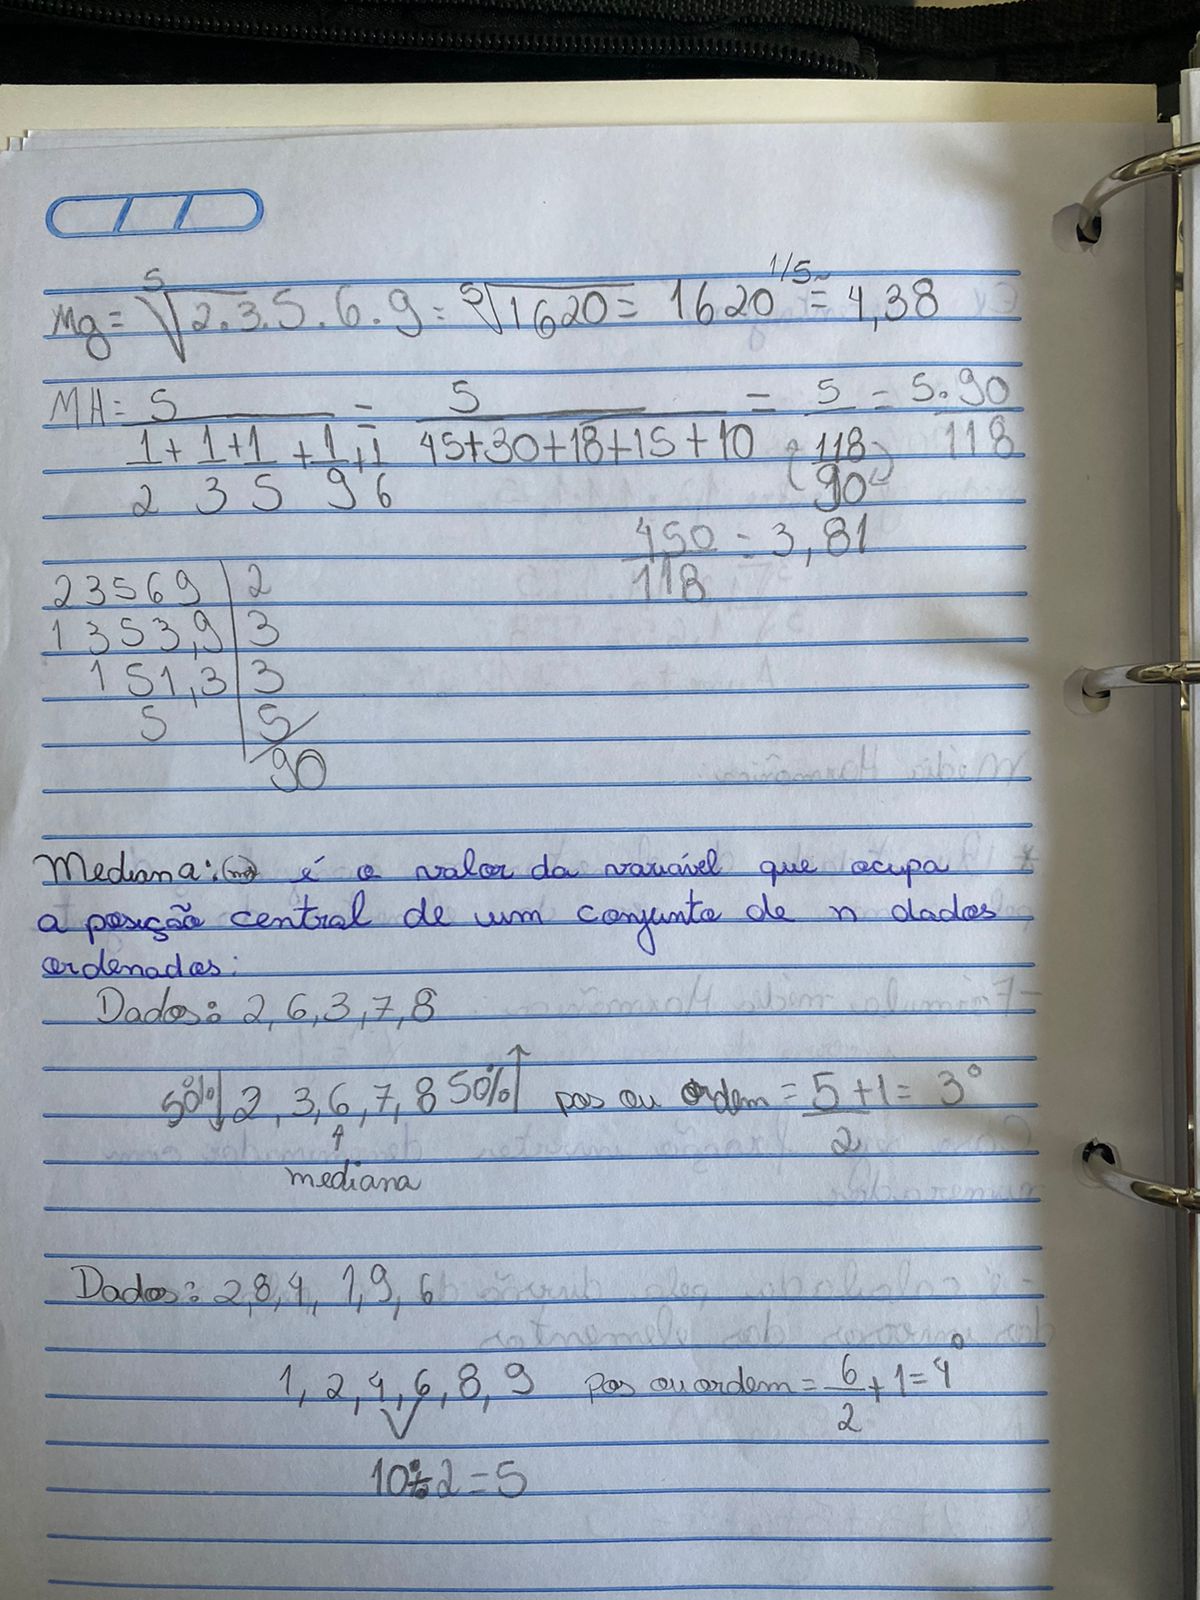 Mg = ⁵√2.3.5.6.9 = ⁵√1620 = 1620^1/5 ≅ 4,38
MH = 5 / (1/2 + 1/3 + 1/5 + 1/9 + 1/6) = 5 / 45+30+18+15+10 = 5 / (118/90) = 5.90 / 118
450/118 = 3,81
2 3 5 6 9 | 2
1 3 5 3,9 | 3
1 5 1,3 | 3
5 | 5
90
Mediana: (md) é o valor da variável que ocupa
a posição central de um conjunto de n dados
ordenados:
Dados: 2, 6, 3, 7, 8
50%↓ 2, 3, 6, 7, 8 50%↑ pos ou ordem = 5+1/2 = 3º
↑
mediana
Dados: 2, 8, 4, 1, 9, 6
1, 2, 4, 6, 8, 9 pos ou ordem = 6/2 + 1 = 4º
10÷2 = 5